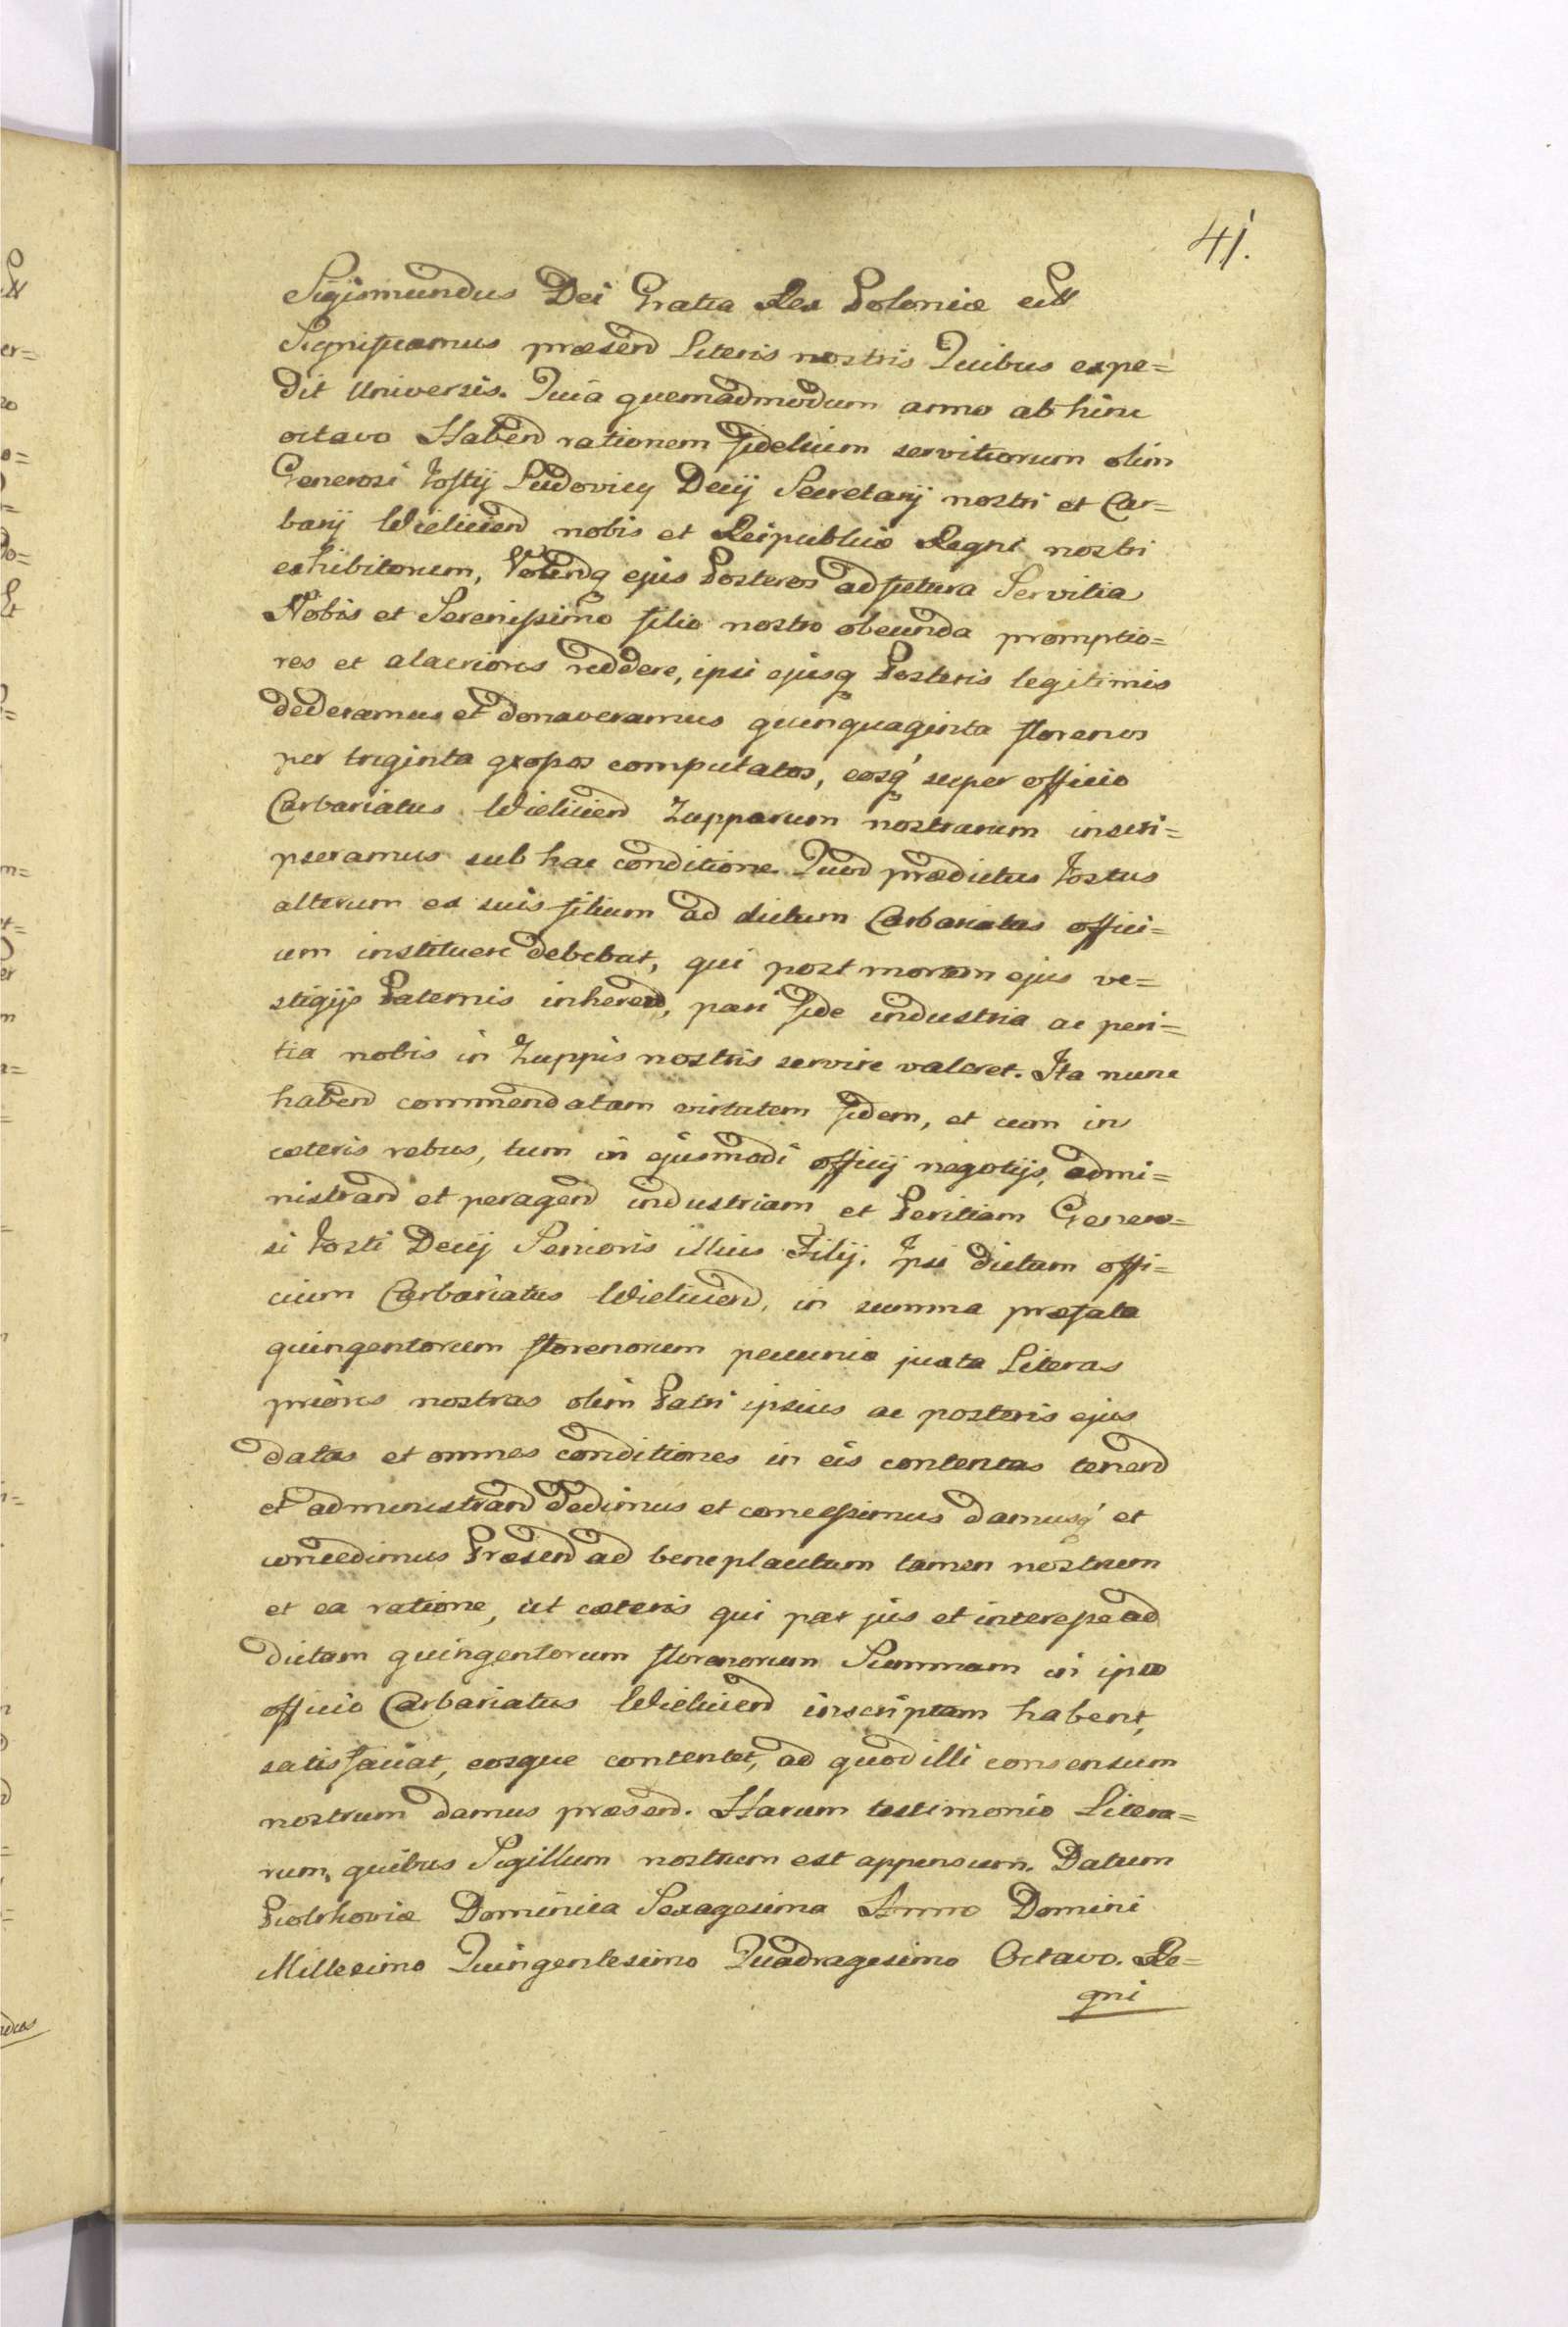 41.
Sigismundus Dei Gratia Rex Poloniæ etc
Significamus præsend Literis nostris Quibus expe=
dit Universis. Quia quemadmodum anno ab hinc
octavo Habend rationem fidelium servitiorum olim
Generosi Jostij Ludovicij Decij Secretarij nostri et Car=
barij Wieliciend nobis et Reipublicæ Regni nostri
exhibitorum, Volendq ejus Posteros ad futura Servitia
Nobis et Serenissimo filio nostro obeunda promptio=
res et alacriores reddere, ipsi ejusq Posteris legitimis
dederamus et donaveramus quinquaginta florenos
per triginta grossos computatos, eosq super officio
Carbariatus Wieliciend Zupparum nostrarum inscri=
pseramus sub hac conditione. Quod prædictus Jostus
alterum ex suis filium ad dictum Carbariatus offici=
um instituere debebat, qui post mortem ejus ve=
stigijs Paternis inherend, pari fide industria ac peri=
tia nobis in Zuppis nostris servire valeret. Ita nunc
habend commendatam virtutem fidem, et cum in
cæteris rebus, tum in ejusmodi officij negotijs, admi=
nistrand et peragend industriam et Peritiam Genero=
si Josti Decij Senioris illius Filij. Ipsi dictum offi=
cium Carbariatus Wieliciend, in summa præfata
quingentorum florenorum pecuniæ juxta Literas
priores nostras olim Patri ipsius ac posteris ejus
datas et omnes conditiones in eis contentas tenend
et administrand dedimus et concessimus damusq et
concedimus Præsend ad beneplacitum tamen nostrum
et ea ratione, ut cæteris qui par jus et interesse ad
dictam quingentorum florenorum Summam in ipso
officio Carbariatus Wieliciend inscriptam habent,
satisfaciat, eosque contentet, ad quod illi consensum
nostrum damus præsend. Harum testimonio Litera=
rum, quibus Sigillum nostrum est appensum. Datum
Piotrkoviæ Dominica Sexagesima Anno Domini
Millesimo Quingentesimo Quadragesimo Octavo. Re=
gni